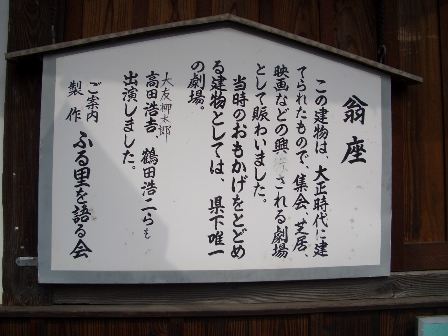 翁座
この建物は、大正時代に建
てられたもので、集会、芝居、
映画などの興行される劇場
として賑わいました。
当時のおもかげをとどめ
る建物としては、県下唯一
の劇場。
大友柳太郎
高田浩吉 鶴田浩二らも
出演しました。
ご案内
製作 ふる里を語る会